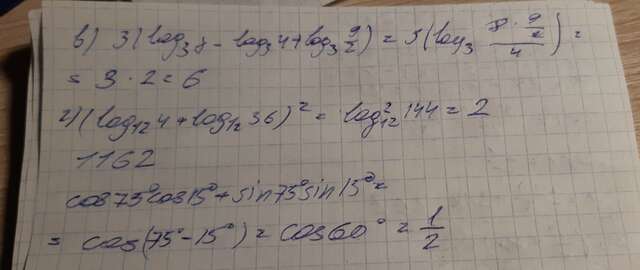 в) 3(log₃8 - log₃4 + log₃ 9/2) = 3(log₃ (8 · 9/2)/4) =
= 3 · 2 = 6
г) (log₁₂4 + log₁₂36)² = log²₁₂144 = 2
1162
cos75°cos15° + sin75°sin15° =
= cos(75° - 15°) = cos60° = 1/2